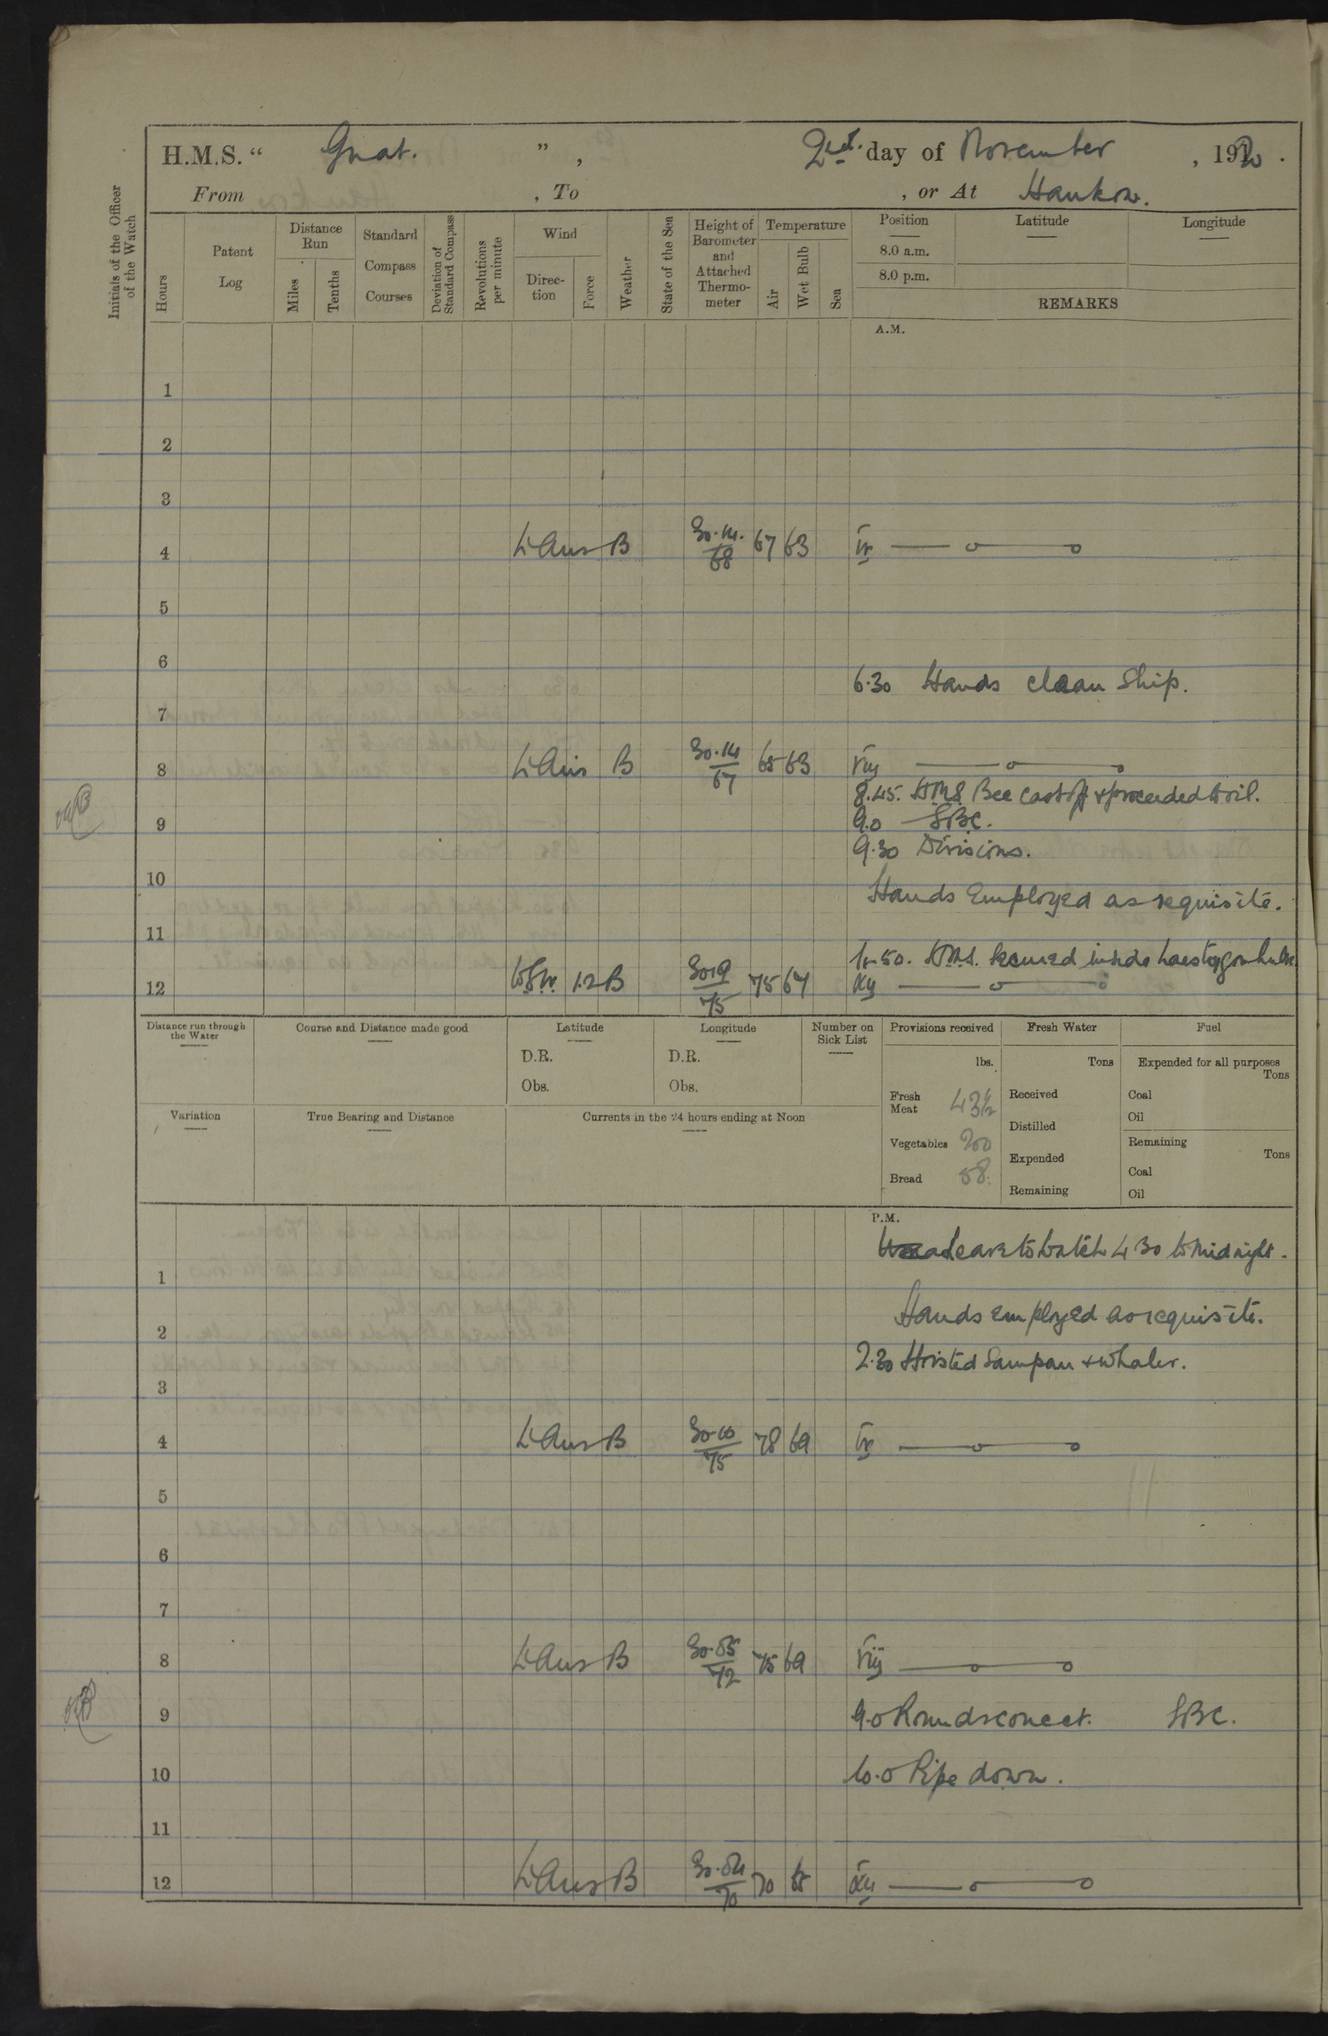 H.M.S. “ Gnat. ” , 2nd. day of November , 1920 .
From , To , or At Hankow.
Initials of the Officer of the Watch
Hours
Patent Log
Distance Run
Miles
Tenths
Standard Compass Courses
Deviation of Standard Compass
Revolutions per minute
Wind
Direction
Force
Weather
State of the Sea
Height of Barometer and Attached Thermometer
Temperature
Air
Wet Bulb
Sea
Position
Latitude
Longitude
8.0 a.m.
8.0 p.m.
REMARKS
A.M.
1
2
3
4 Lt Airs B 30.14. 68 67 63 IV
5
6
6.30 Hands clean Ship.
7
8 Lt Airs B 30.14 67 65 63 VIII
8.45. H.M.S. Bee cast off & proceeded to oil.
9
9.0 SBC.
9.30 Divisions.
10
Hands Employed as requisite.
11
H.M.S. secured inside
12 W.S.W. 1.2 B 30.19 75 75 67 XII
Distance run through the Water
Course and Distance made good
Latitude
Longitude
D.R.
D.R.
Obs.
Obs.
Number on Sick List
Provisions received
lbs.
Fresh Meat 43½
Vegetables 200
Bread 58.
Fresh Water
Tons
Received
Distilled
Expended
Remaining
Fuel
Expended for all purposes
Tons
Coal
Oil
Remaining
Tons
Coal
Oil
Variation
True Bearing and Distance
Currents in the 24 hours ending at Noon
P.M.
Leave to watch 4 30 to Midnight.
1
Hands employed as requisite.
2
2.30 Hoisted Sampan & Whaler.
3
4 Lt Airs B 75 78 69 IV
5
6
7
8 Lt Airs B 72 75 69 VIII
9 9.0 Rounds correct. SBC.
10 10.0 Pipe down.
11
12 Lt Airs B 70 70 XII